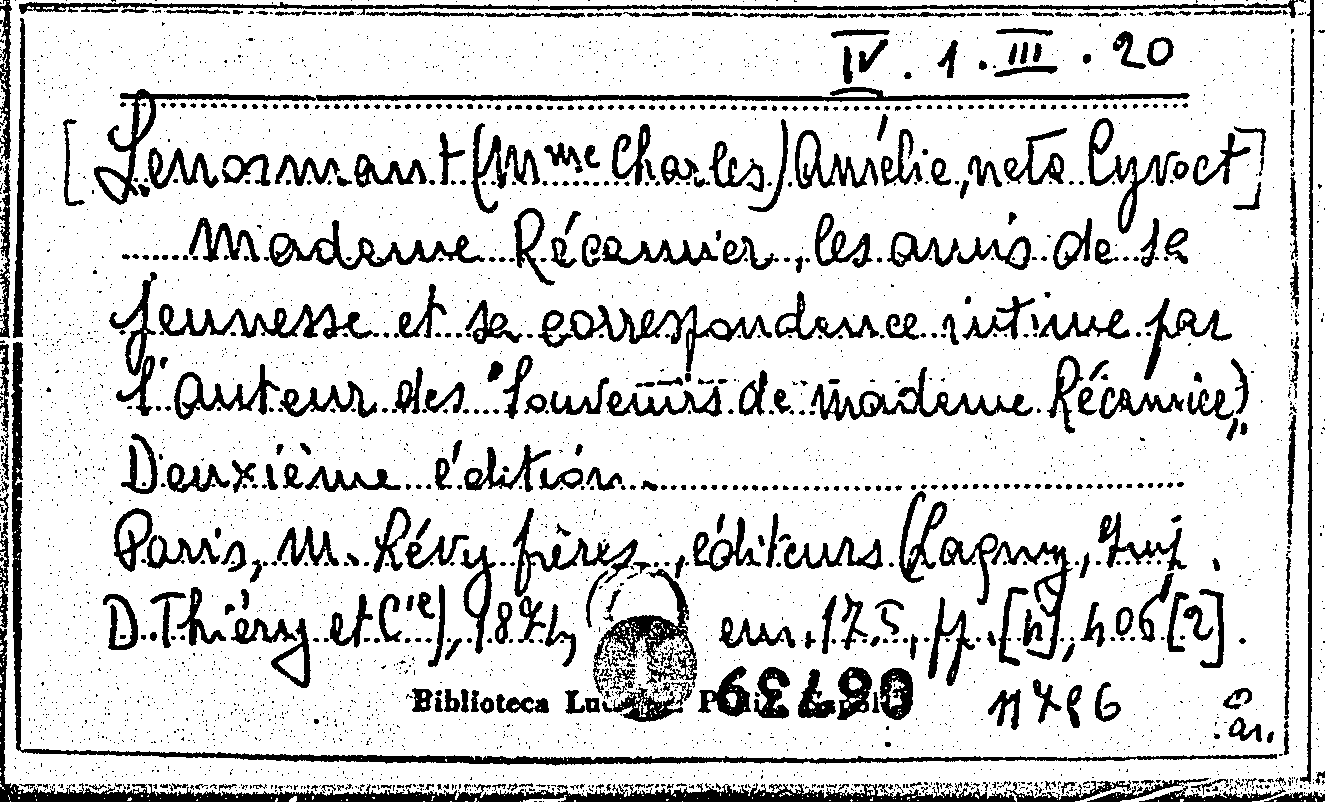 IV . 1 . III . 20
[Lenormant (Mme Charles) Amélie, neta Cyvoct]
Madame Récamier, les amis de sa
jeunesse et sa correspondance intime par
l'auteur des "Souvenirs de madame Récamier)".
Deuxième édition.
Paris, M. Lévy frères, éditeurs (Lagny, Imp.
D. Thiéry et Cie), 1874, cm. 17,5, pp. [4], 406 [2].
Biblioteca
11786